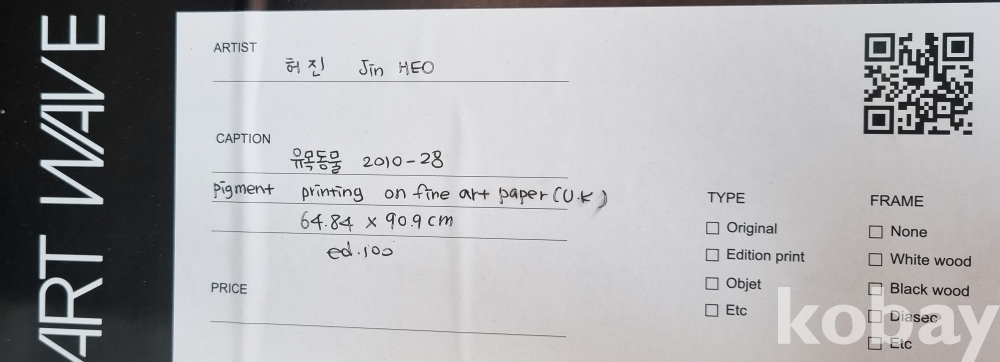 ART WAVE
ARTIST
허 진 Jin HEO
CAPTION
유목동물 2010-28
pigment printing on fine art paper (U.K)
64.84 x 90.9 cm
ed.100
PRICE
TYPE
☐ Original
☐ Edition print
☐ Objet
☐ Etc
FRAME
☐ None
☐ White wood
☐ Black wood
☐ Diasec
☐ Etc
kobay